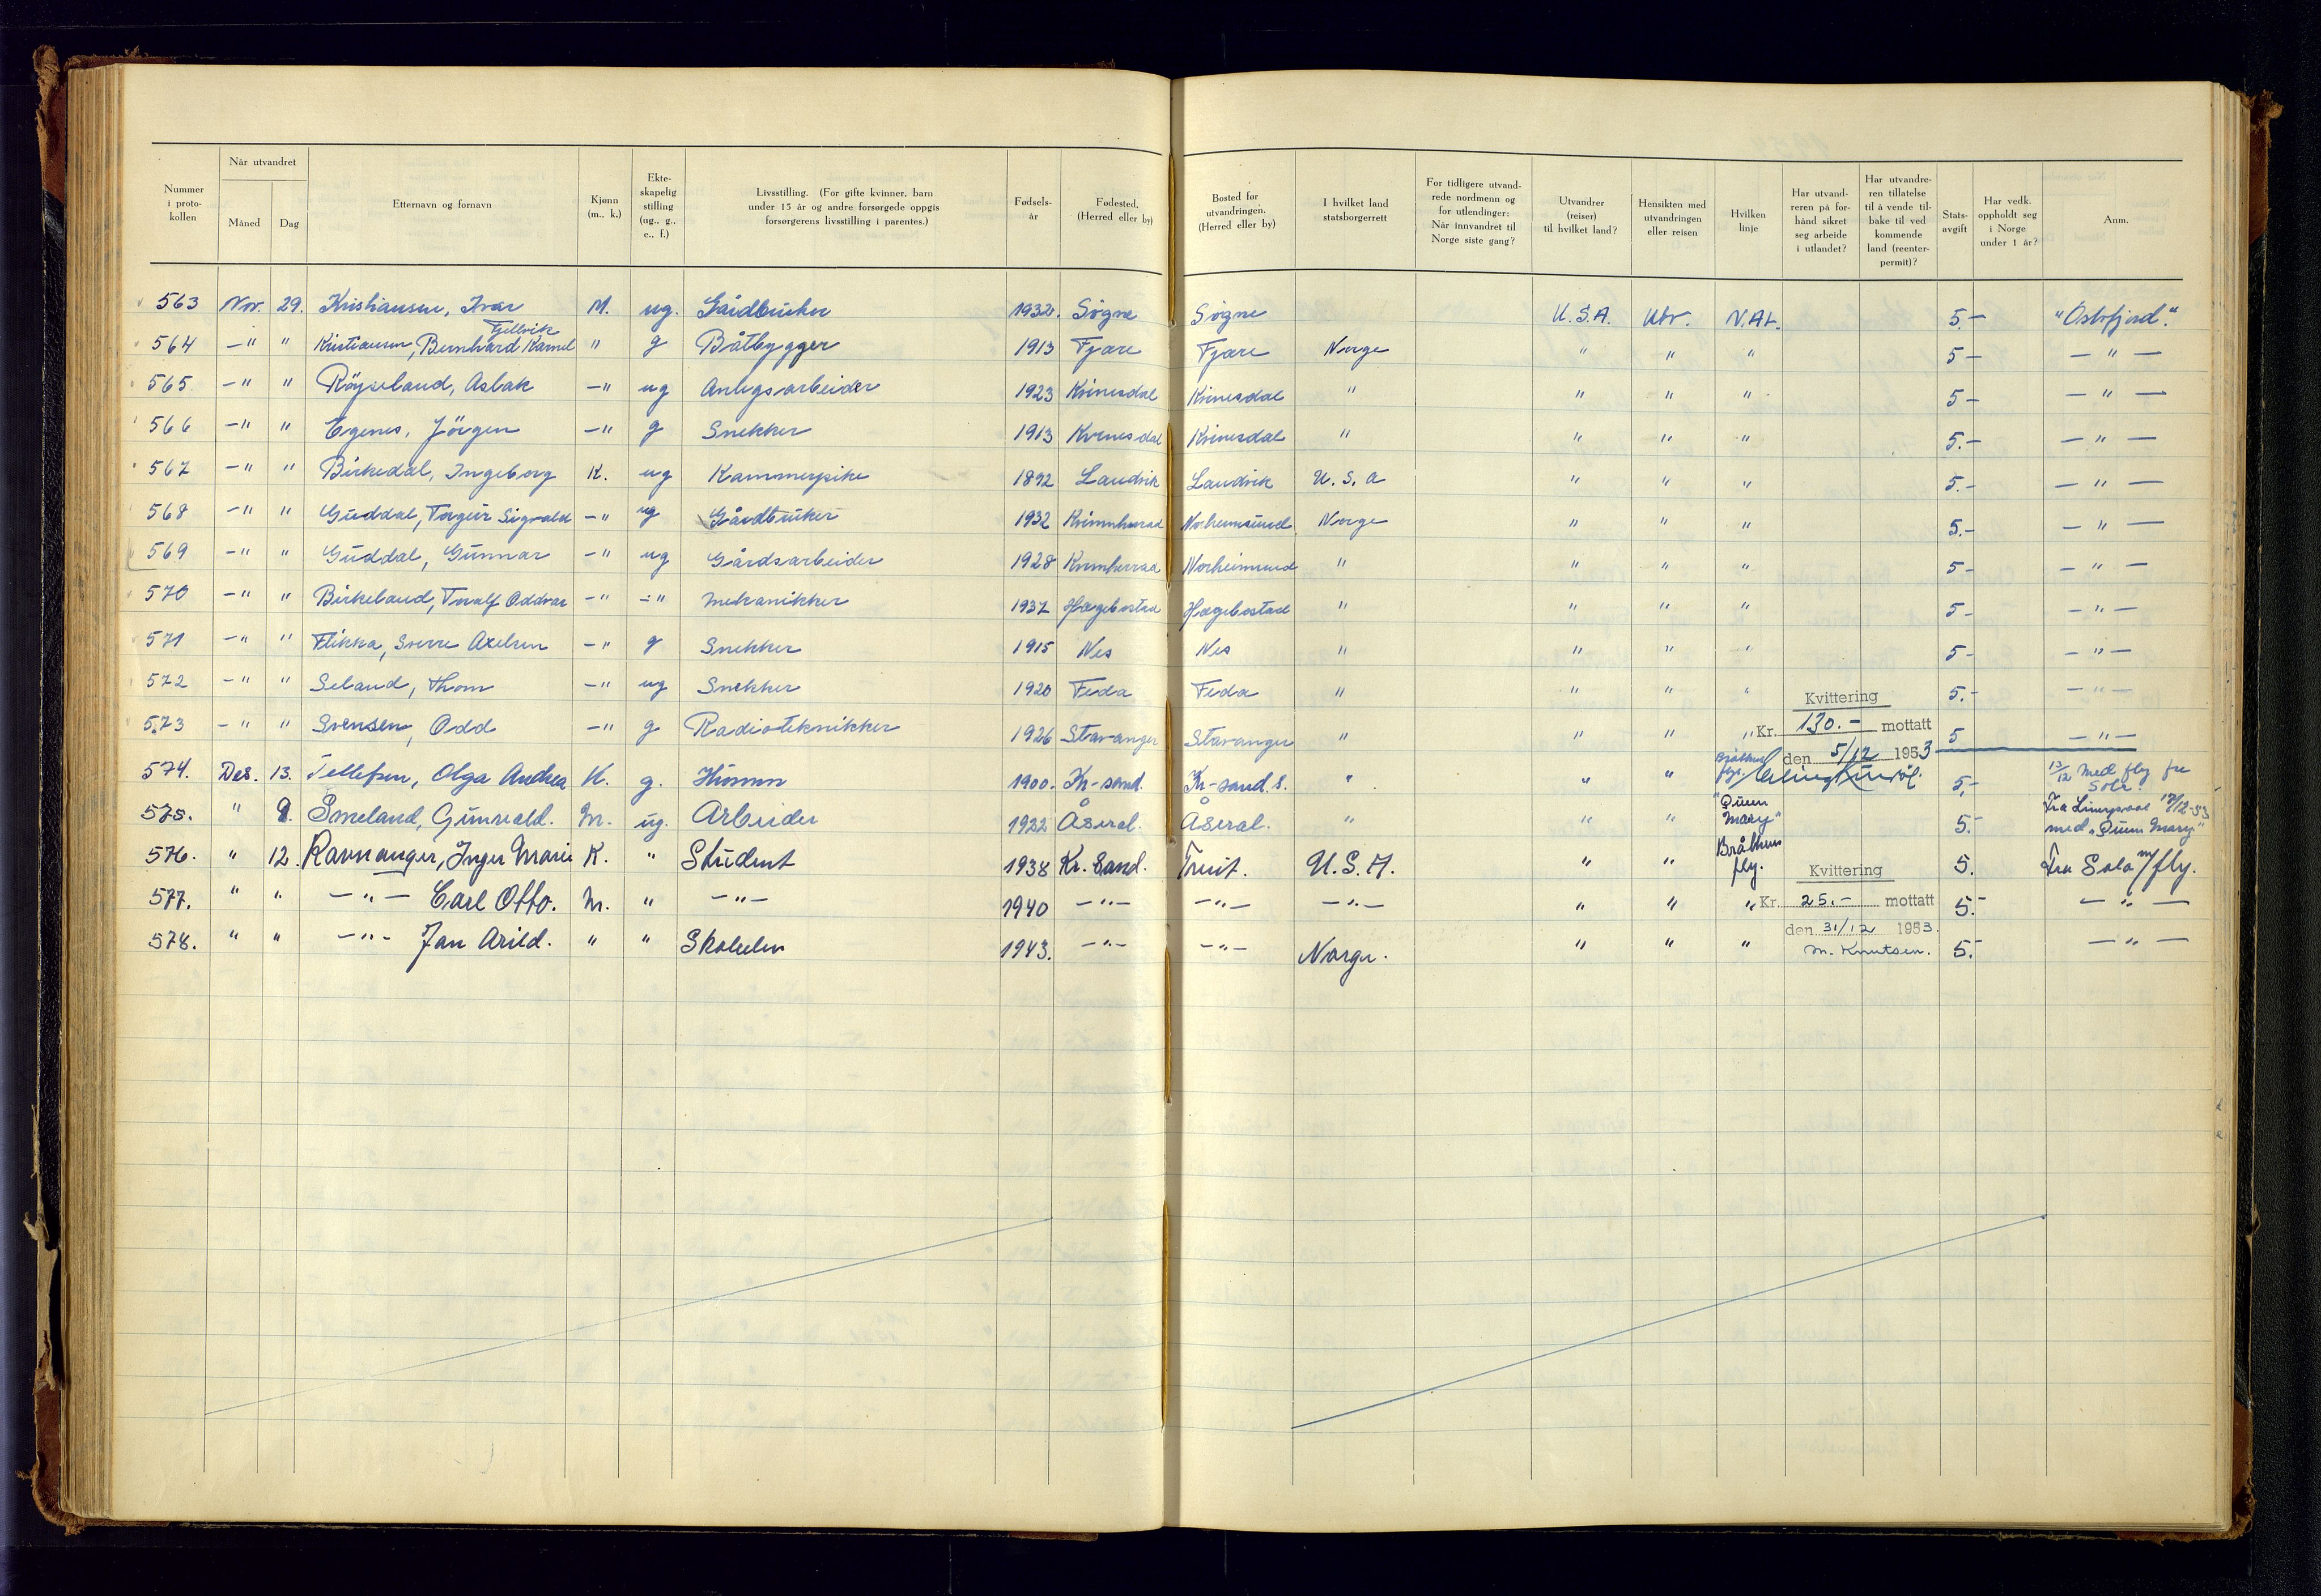 Nummer i proto- kollen | Når utvandret: Måned | Dag | Etternavn og fornavn | Kjønn (m., k.) | Ekte- skapelig stilling (ug., g., e., f.) | Livsstilling. (For gifte kvinner, barn under 15 år og andre forsørgede oppgis forsørgerens livsstilling i parentes.) | Fødsels- år | Fødested. (Herred eller by) | Bosted før utvandringen. (Herred eller by) | I hvilket land statsborgerrett | For tidligere utvand- rede nordmenn og for utlendinger: Når innvandret til Norge siste gang? | Utvandrer (reiser) til hvilket land? | Hensikten med utvandringen eller reisen | Hvilken linje | Har utvand- reren på for- hånd sikret seg arbeide i utlandet? | Har utvandre- ren tillatelse til å vende til- bake til ved kommende land (reenter- permit)? | Stats- avgift | Har vedk. oppholdt seg i Norge under 1 år? | Anm.
563 Nov. 29. Kristiansen, Ivar M. ug. Gårdbruker 1932. Søgne Søgne U.S.A. Utv. N.A.L. 5.- "Oslofjord."
Fjellvik
564 -"- " Kristiansen, Bernhard Kornel " g Båtbygger 1913 Fjære Fjære Norge " " " 5- -"-
565. -"- " Röyseland, Aslak -" ug Anlegsarbeider 1923 Kvinesdal Kvinesdal " " " " 5- -"-
566 -"- " Egenes, Jörgen -" g Snekker 1913 Kvinesdal Kvinesdal " " " " 5.- -"-
567 -"- " Birkedal, Ingeborg K. ug Kammerpike 1892 Landvik Landvik U.S.A " " " 5.- -"-
568 -"- " Guddal, Torgeir Sigvald -" ug Gårdbruker 1932 Kvinnherad Norheimsund Norge " " " 5.- -"-
569 -"- " Guddal, Gunnar -" ug Gårdsarbeider 1928 Kvinnherrad Norheimsund " " " " 5- -"-
570 -"- " Birkeland, Toralf Oddvar -" -" Mekanikker 1937 Hægebostad Hægebostad " " " " 5- -"-
571 -"- " Flikka, Sverre Axelsen -" g Snekker 1915 Nes Nes " " " " 5- -"-
572 -"- " Seland, Thom -" ug Snekker 1920 Feda Feda " " " " 5.- -"-
Kvittering
573 -"- " Svensen, Odd -" g Radiotekniker 1926 Stavanger Stavanger " " " " Kr. 130.- mottatt 5 -"-
den 5/12 1953
574. Des. 13. Tellefsen, Olga Andrea K. g. Husmor 1900. Kr-sand. Kr-sand.S. " " " 5,- 13/12 Med fly fra Sola.
575. " 9. Smeland, Gunvald. M. ug. Arbeider 1922 Åseral. Åseral. " " " "Queen Mary" 5.- Fra Liverpool 17/12-53 med "Queen Mary"
576. " 12. Ravnanger, Inger Marie K. " Student 1938 Kr.Sand. Treit. U.S.A. " " Bråthens fly. 5. Fra Sola m/fly.
Kvittering
577. " " -"- Carl Otto. M. " -"- 1940 -"- -"- -"- " " " Kr. 25.- mottatt 5.- -"-
den 31/12 1953.
578. " " -"- Jan Arild. " " Skoleelev 1943. -"- -"- Norge. " " " M. Knutsen. 5.- -"-